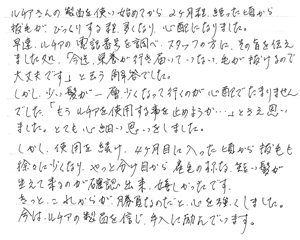 ルチアさんの製品を使い始めてから2ヶ月程経った頃から
抜毛がびっくりする程多くなり、心配になりました。
早速、ルチアの電話番号を調べ、スタッフの方に、その旨を伝え
ました処、「今迄、栄養が行き届いていない毛が抜けるので
大丈夫です」と言う解答でした。
しかし、少い髪が一層少くなって行くのが心配でたまりません
でした。「もうルチアを使用する事を止めようか…」とさえ思い
ました。とても心細い思いをしました。
しかし、使用を続け、4ヶ月目に入った頃から抜毛も
徐々に少くなり、やっと分け目から産毛の様な、短い髪が
生えて来るのが確認出来、嬉しかったです。
きっと、これからが、勝負なのだと、心を強くしました。
今は、ルチアの製品を信じ、手入に励んでいます。